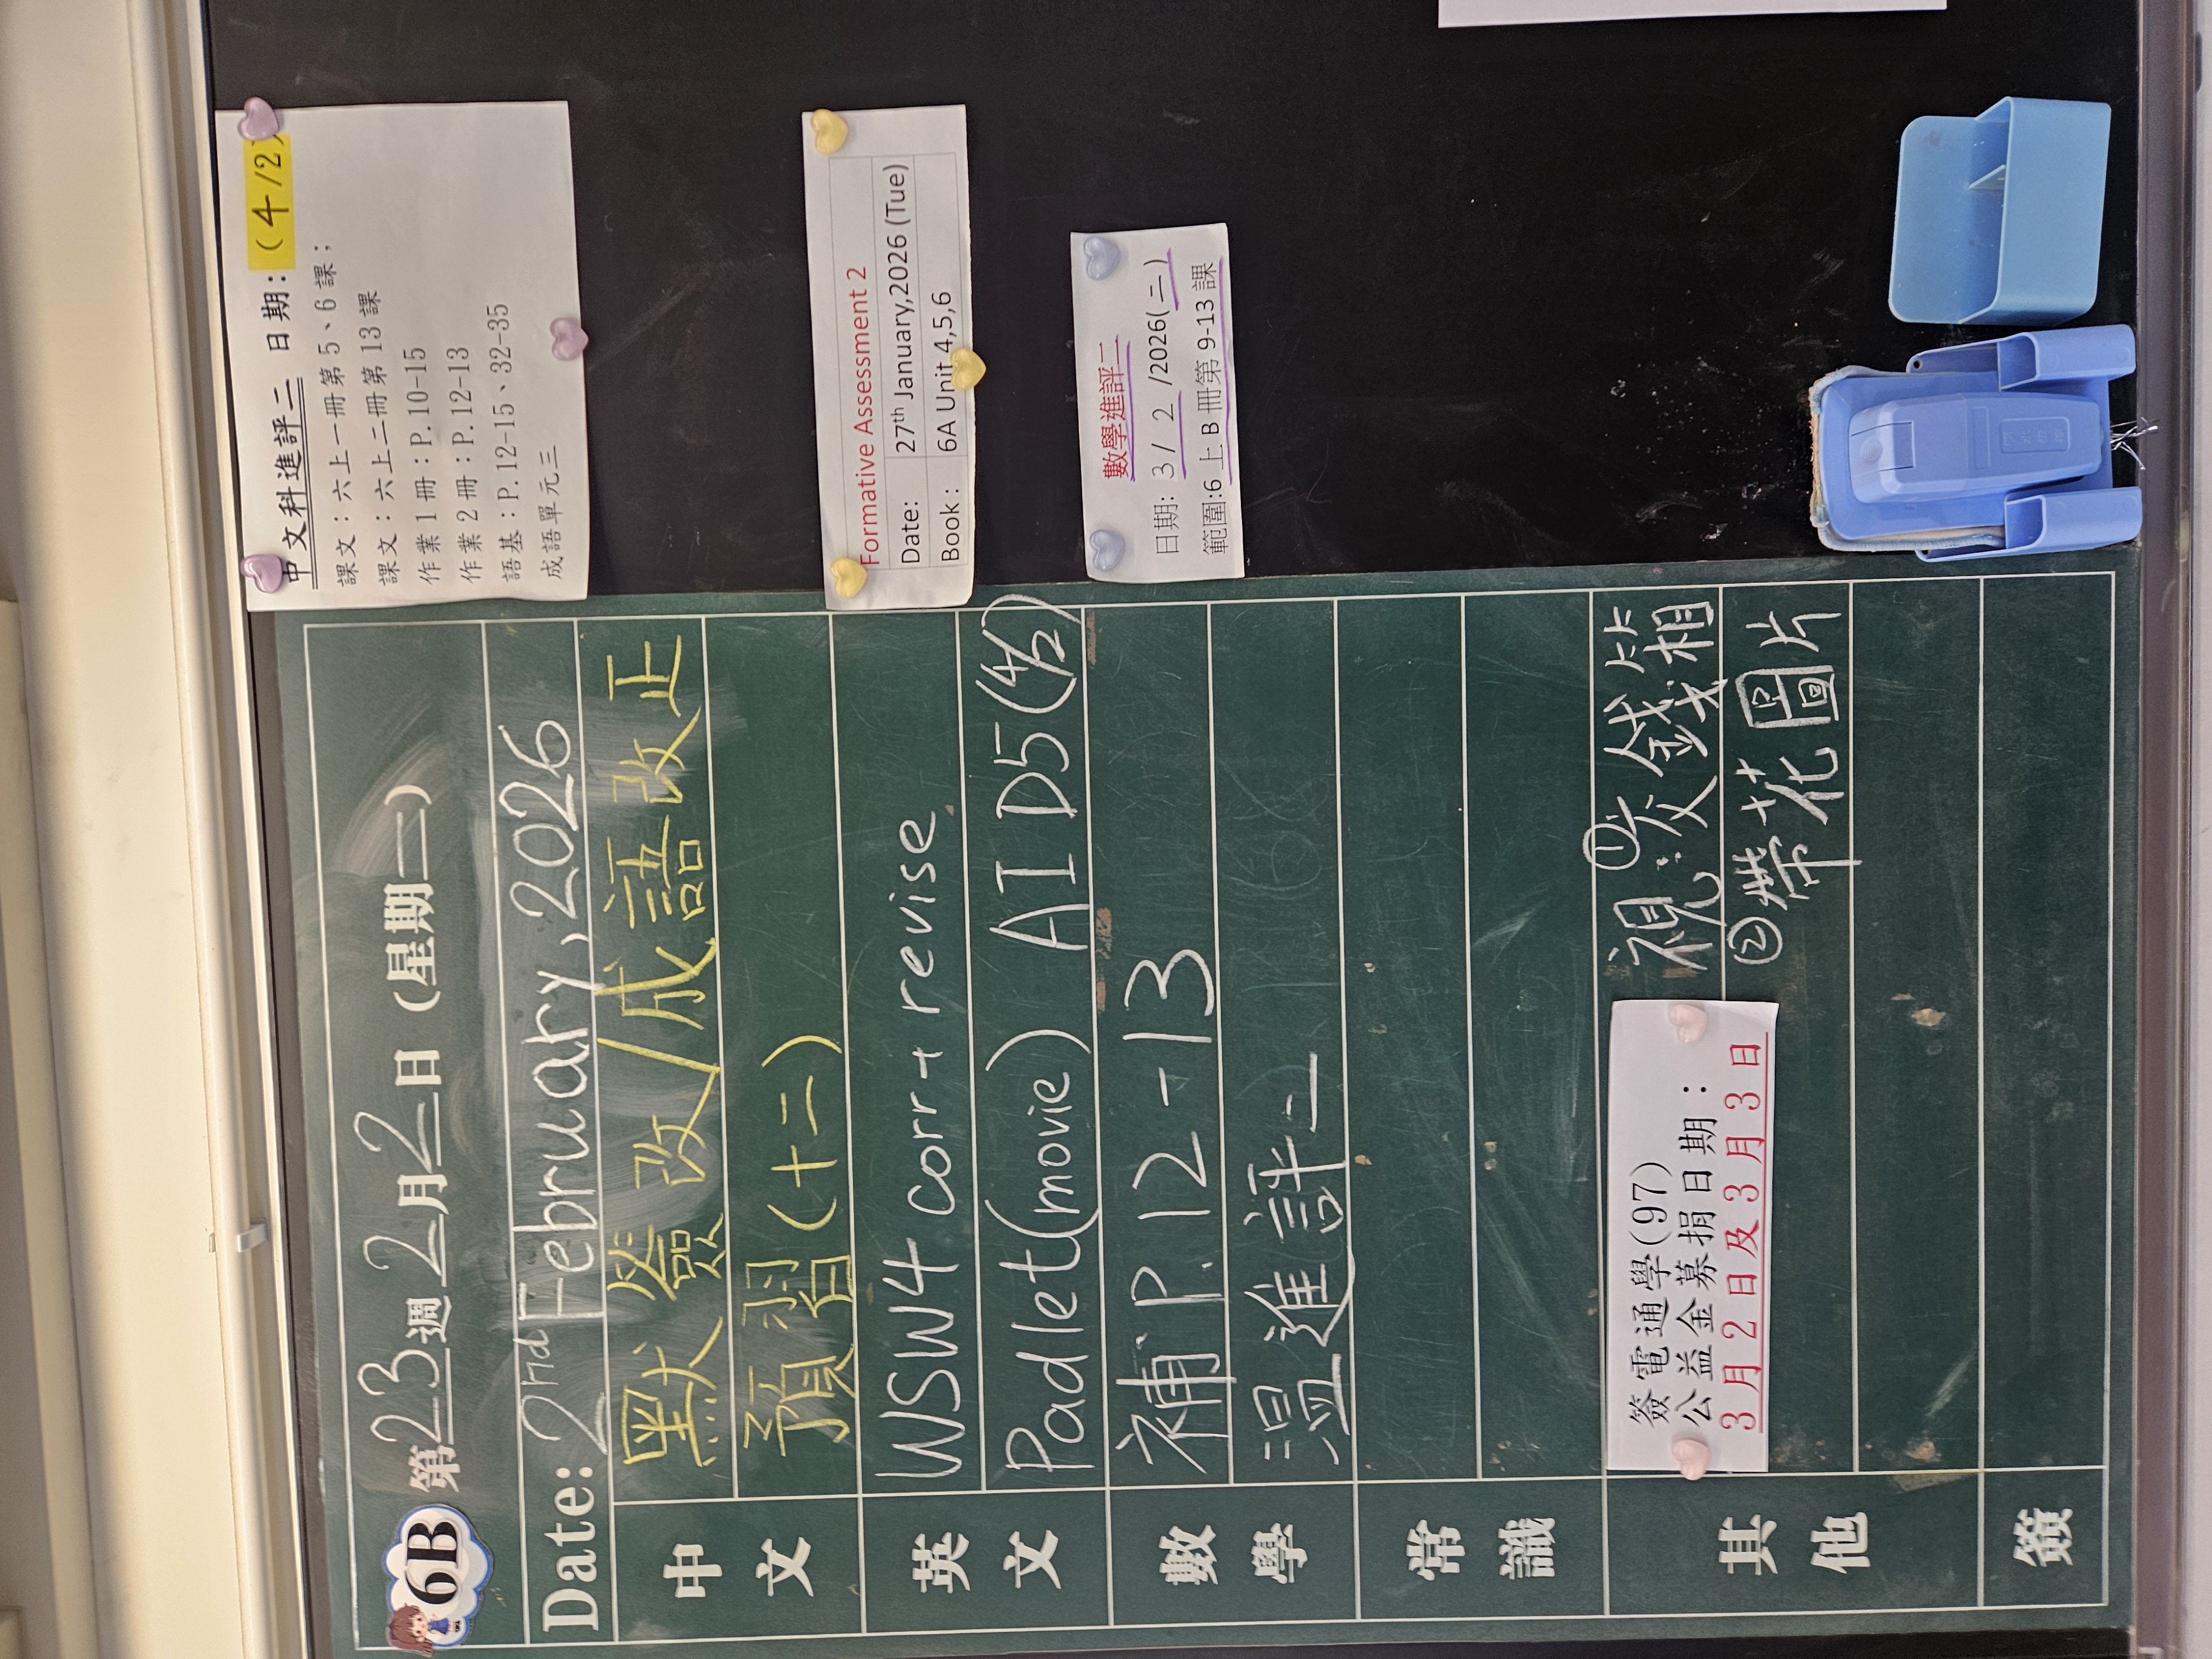 6B 第23週 2月2日 (星期一)
Date: 2nd February, 2026
中文
默簽改/成語改正
預習(十二)
英文
WSW4 corr+ revise
Padlet(movie) AI D5(4/2)
數學
補P.12-13
溫進評二
常識
其他
簽電通學(97)
公益金募捐日期：
3月2日及3月3日
視:①交錢箱
②帶花圖片
簽
中文科進評二 日期:(4/2)
課文：六上一冊第5、6課；
課文：六上二冊第13課
作業1冊：P.10-15
作業2冊：P.12-13
語基：P.12-15、32-35
成語單元三
Formative Assessment 2
Date: 27th January,2026 (Tue)
Book: 6A Unit 4,5,6
數學進評二
日期: 3/ 2 /2026(二)
範圍:6上B冊第9-13課